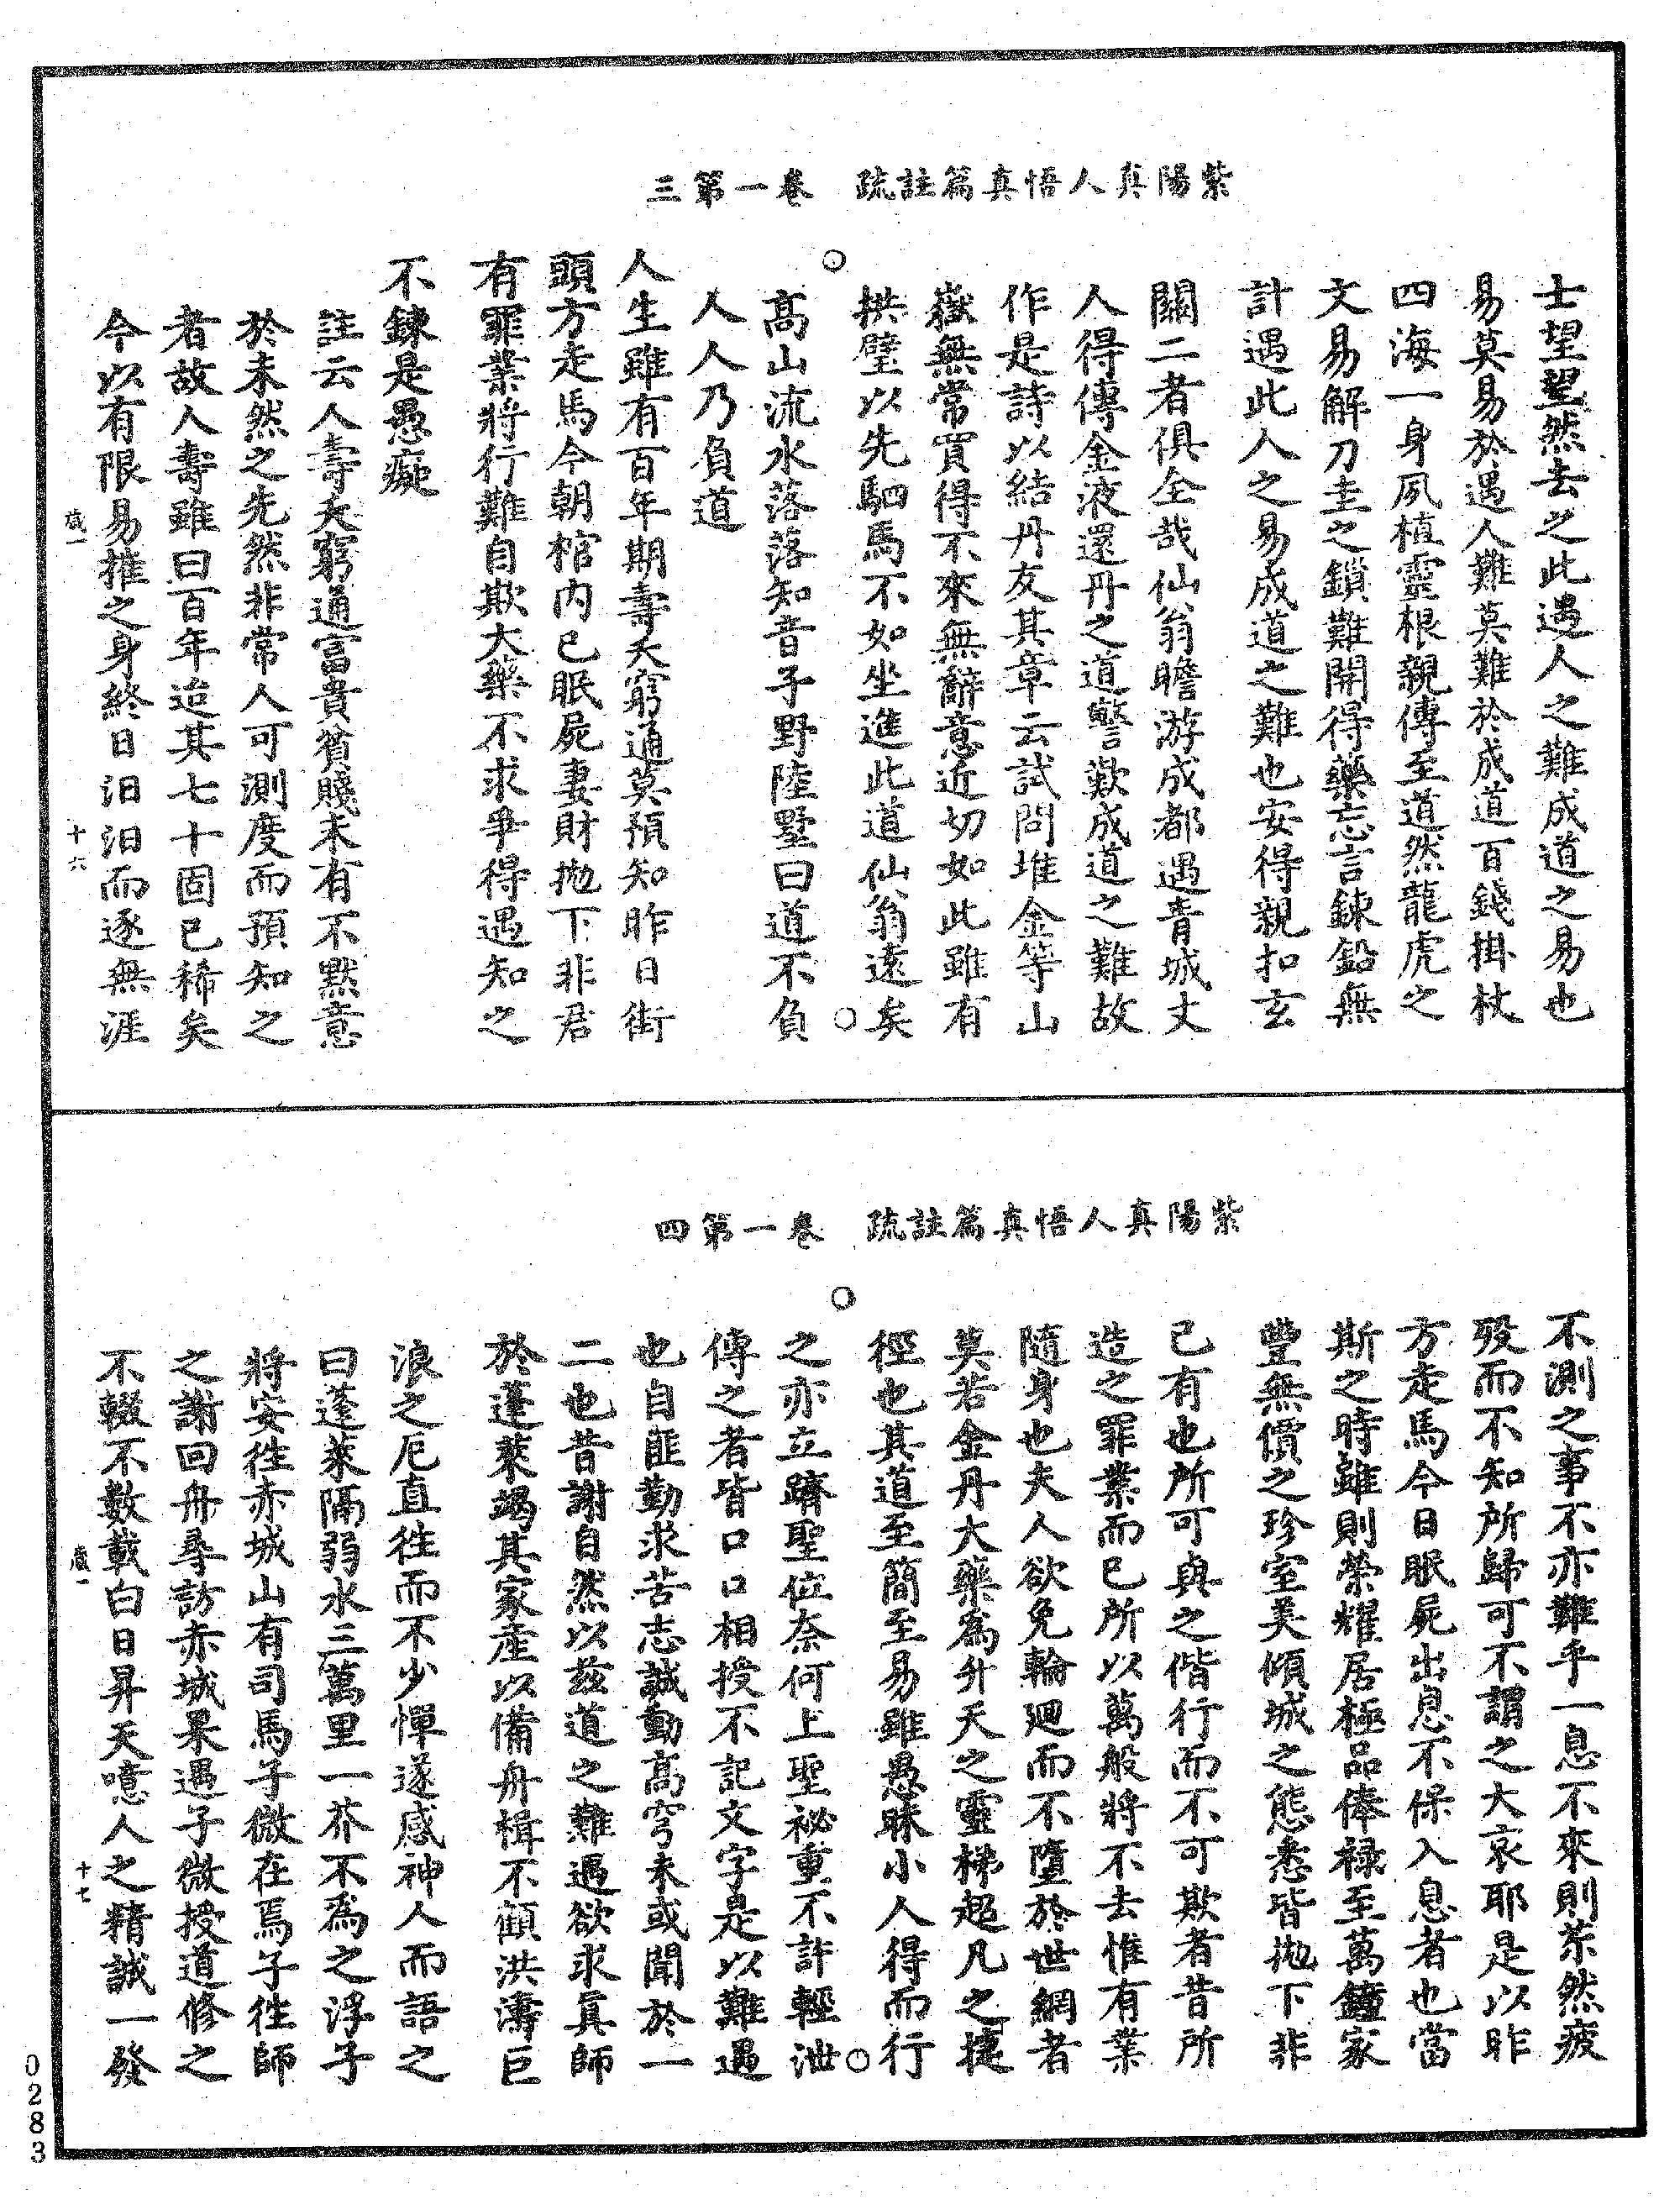 紫陽真人悟真篇註疏　卷一第三
士望望然去之此遇人之難成道之易也
易莫易於遇人難莫難於成道百錢掛杖
四海一身夙植靈根親傳至道然龍虎之
文易解刀圭之鎖難開得藥忘言鍊鉛無
計遇此人之易成道之難也安得親扣玄
關二者俱全哉仙翁瞻游成都遇青城丈
人得傳金液還丹之道警歎成道之難故
作是詩以結丹友其章云試問堆金等山
嶽無常買得不來無辭意近切如此雖有
拱璧以先駟馬不如坐進此道仙翁遠矣
高山流水落落知音子野陸墅曰道不負
人人乃負道
人生雖有百年期壽夭窮通莫預知昨日街
頭方走馬今朝棺內已眠屍妻財拋下非君
有罪業將行難自欺大藥不求爭得遇知之
不鍊是愚癡
註云人壽夭窮通富貴貧賤未有不默意
於未然之先然非常人可測度而預知之
者故人壽雖曰百年迨其七十固已稀矣
今以有限易摧之身終日汨汨而逐無涯
歲一
十六
紫陽真人悟真篇註疏　卷一第四
不測之事不亦難乎一息不來則苶然疲
歿而不知所歸可不謂之大哀耶是以昨
方走馬今日眠屍出息不保入息者也當
斯之時雖則榮耀居極品俸祿至萬鐘家
豐無價之珍室美傾城之態悉皆拋下非
己有也所可與之偕行而不可欺者昔所
造之罪業而已所以萬般將不去惟有業
隨身也夫人欲免輪廻而不墮於世網者
莫若金丹大藥為升天之靈梯超凡之捷
徑也其道至簡至易雖愚昧小人得而行
之亦立躋聖位奈何上聖祕重不許輕泄
傳之者皆口口相授不記文字是以難遇
也自匪勤求苦志誠動高穹未或聞於一
二也昔謝自然以茲道之難遇欲求真師
於蓬萊竭其家產以備舟楫不顧洪濤巨
浪之厄直往而不少憚遂感神人而語之
曰蓬萊隔弱水三萬里一芥不為之浮子
將安往赤城山有司馬子微在焉子往師
之謝回舟尋訪赤城果遇子微授道修之
不輟不數載白日昇天噫人之精誠一發
歲一
十七
0283